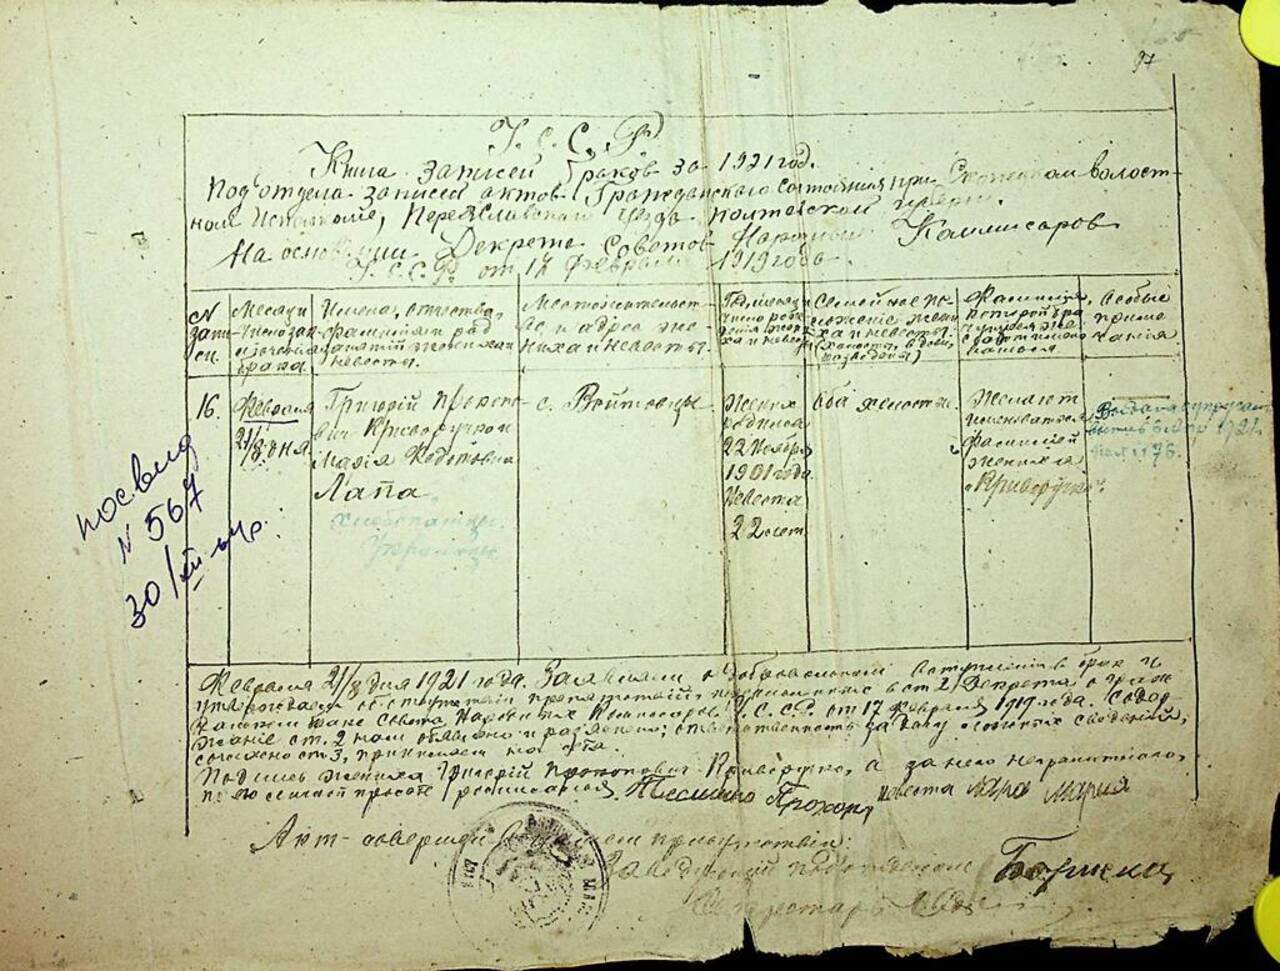 97
У. С. С. Р
Книга записей браков за 1921 год.
Подотдела записей актов Гражданского состояния при волост-
ном Исполкоме, Переяславского уезда Полтавской губерн.
На основании Декрета Советов Народных Комиссаров
У.С.С.Р. от 17 февраля 1919 года.
N запи- си.
Месяц и число зак- лючения брака
Имена, отчества, фамилии и род занятий жениха и невесты.
Местожительст- во и адрес же- ниха и невесты.
Год, месяц и число рож- дения жени- ха и невесты
Семейное по- ложение жени- ха и невесты. (холосты, вдовы, разведены)
Фамилия, которой
Особые приме- чания.
16.
Февраля 21/8 дня
Григорій Прокопо- вич Криворучко и Марія Федотовна Лапа
хлебопашцы. Украинцы
с. Войтовцы
Жених родился 22 Ноября 1901 года Невеста 22 лет
Оба холосты.
Желают именоваться фамилией жениха "Криворучко".
1921 176.
посвид
N 567
30/XII
Февраля 21/8 дня 1921 года. Заявляем о добровольном вступлении в брак и
утверждаем об отсутствии препятствий, перечисленных в ст 2 Декрета о
Совета Народных Комиссаров У.С.С.Р. от 17 февраля 1919 года. Содер-
жание ст. 2 нам объявлено и разъяснено; ответственность за дачу ложных сведений,
согласно ст 3, принимаем на себя.
Подпись жениха Григорій Прокопович Криворучко, а за него неграмотного,
по его личной просьбе расписался Прохор, невеста Лара Мария
Акт совершен в нашем присутствии:
Заведующий подотделом
Секретарь